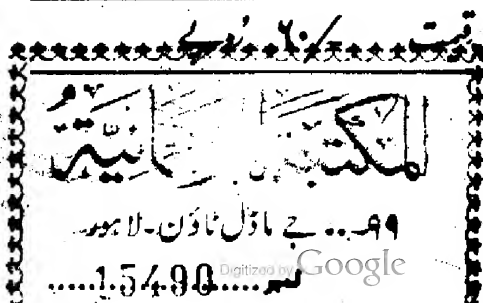 قیمت ۶۰/- روپے
المكتبة الرحمانية
۹۹... جے ماڈل ٹاؤن۔ لاہور
نمبر.....15490.....
Digitized by Google